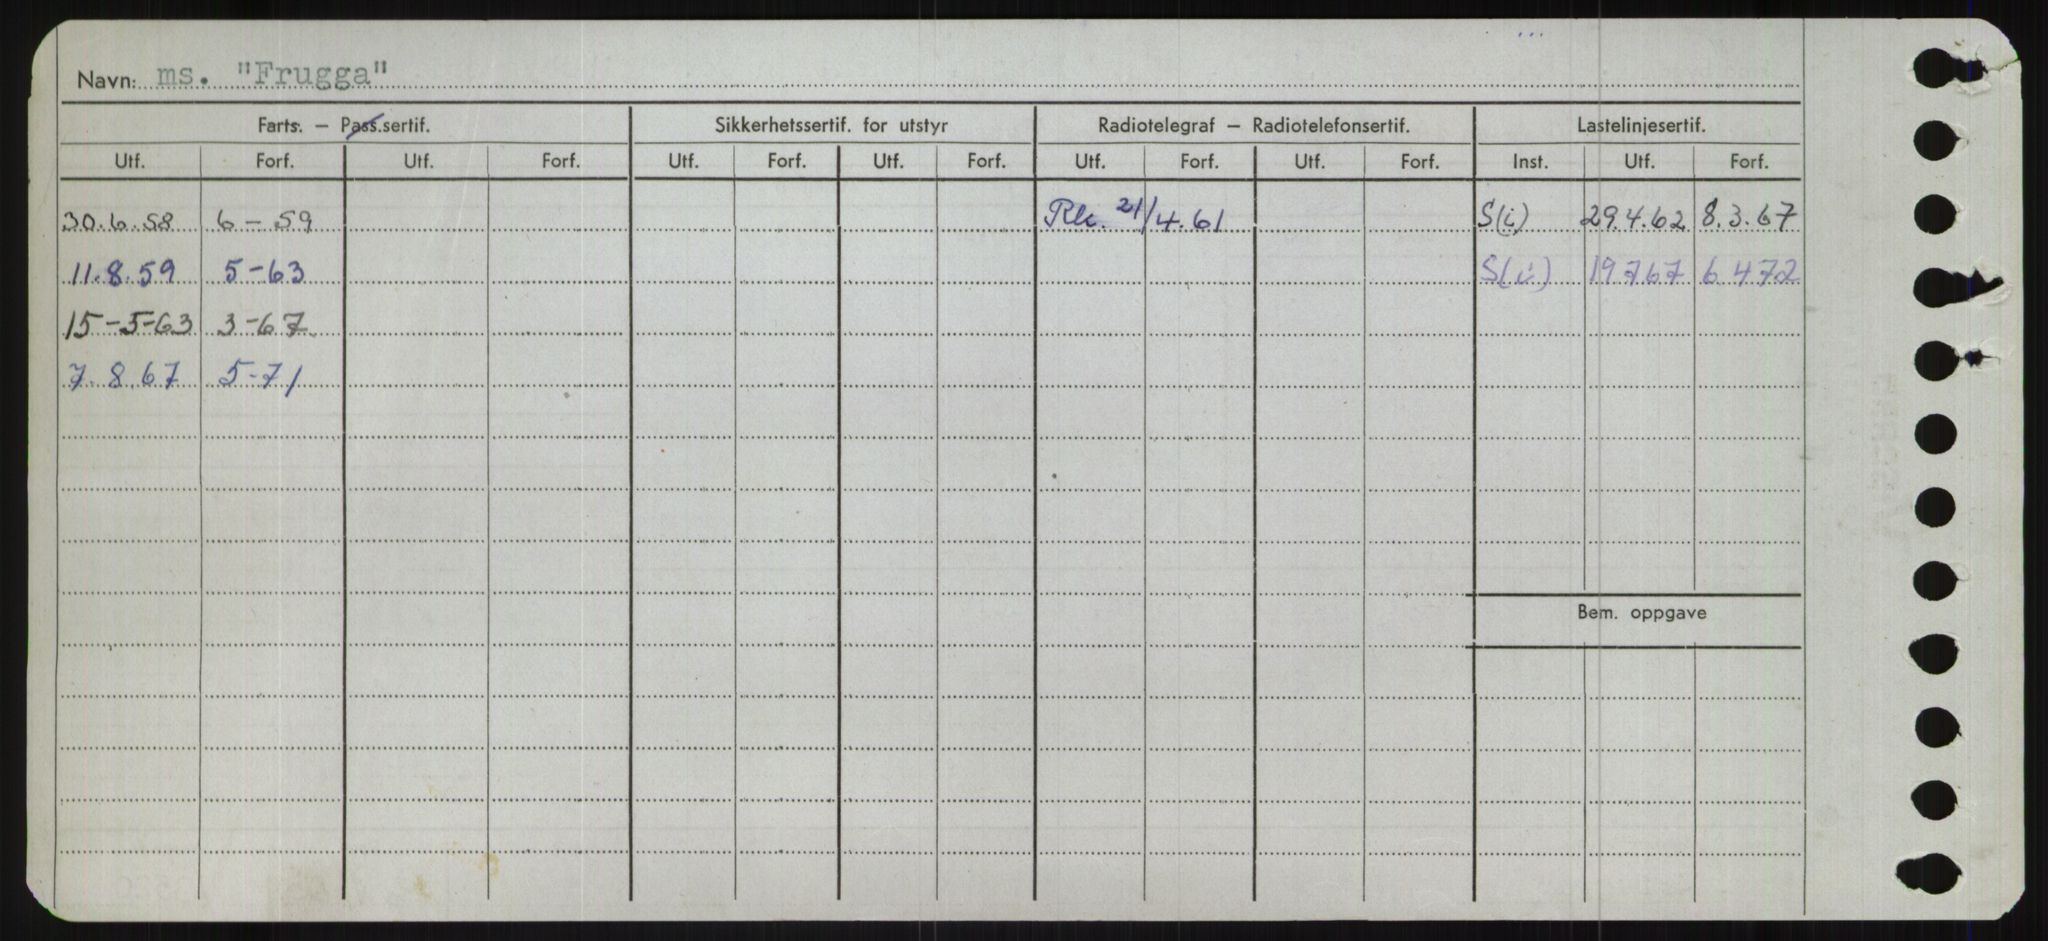 Navn: ms. "Frugga"
Farts. – Pass.sertif. Sikkerhetssertif. for utstyr Radiotelegraf – Radiotelefonsertif. Lastelinjesertif.
Utf. Forf. Utf. Forf. Utf. Forf. Utf. Forf. Utf. Forf. Utf. Forf. Inst. Utf. Forf.
30.6.58 6-59 21/4.61 S(i) 29.4.62 8.3.67
11.8.59 5-63 S(i) 19767 6472
15-5-63 3-67
7.8.67 5-71
Bem. oppgave